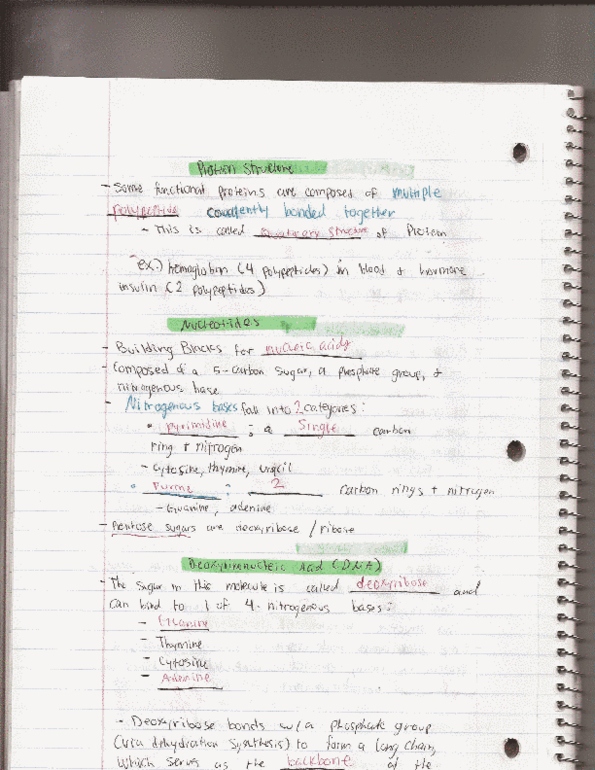 Protein Structure
- Some functional proteins are composed of multiple
polypeptide covalently bonded together
- This is called Quaternary Structure of Protein
ex:) hemoglobin (4 polypeptides) in blood + hormone
insulin (2 polypeptides)
Nucleotides
- Building Blocks for nucleic acids
- Composed of a 5-carbon sugar, a phosphate group, +
nitrogenous base
- Nitrogenous bases fall into 2 categories:
• Pyrimidine : a Single carbon
ring + nitrogen
- Cytosine, thymine, uracil
• Purine : 2 carbon rings + nitrogen
- Guanine, adenine
- Pentose sugars are deoxyribose / ribose
Deoxyribonucleic Acid (DNA)
- The sugar in this molecule is called deoxyribose and
can bind to 1 of 4 nitrogenous bases:
- Guanine
- Thymine
- Cytosine
- Adenine
- Deoxyribose bonds w/ a phosphate group
(via dehydration synthesis) to form a long chain,
which serves as the backbone of the